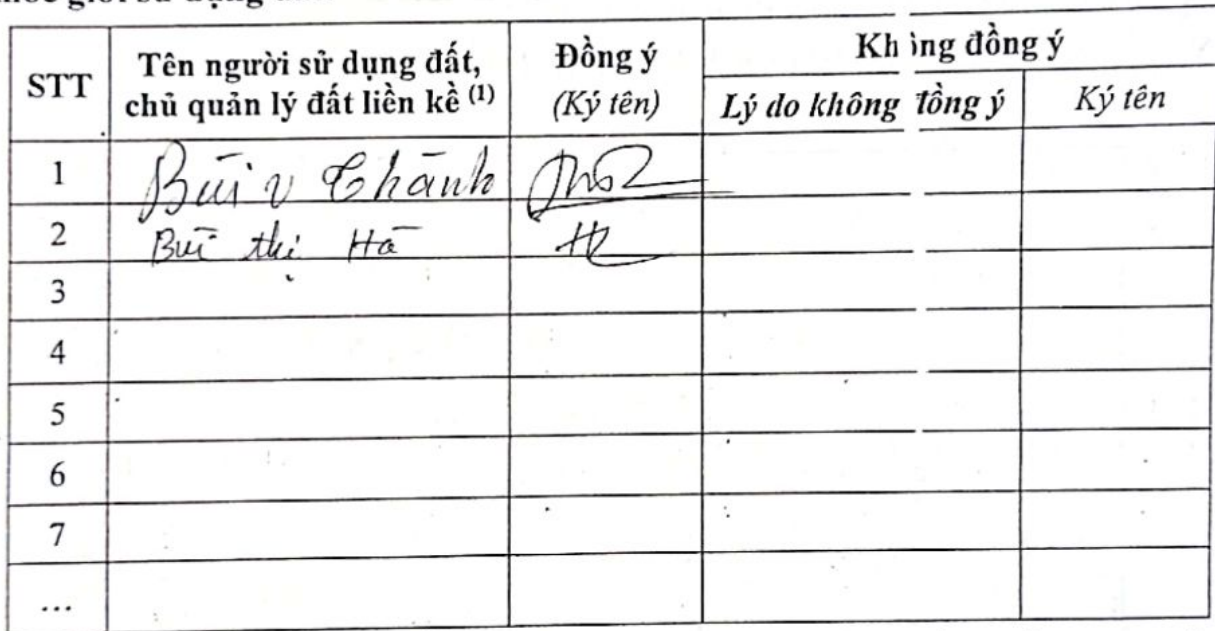 STT Tên người sử dụng đất, chủ quản lý đất liền kề (1) Đồng ý (Ký tên) Không đồng ý
Lý do không đồng ý Ký tên
1 Bùi v Chānh
2 Bùi thị Hà
3
4
5
6
7
...